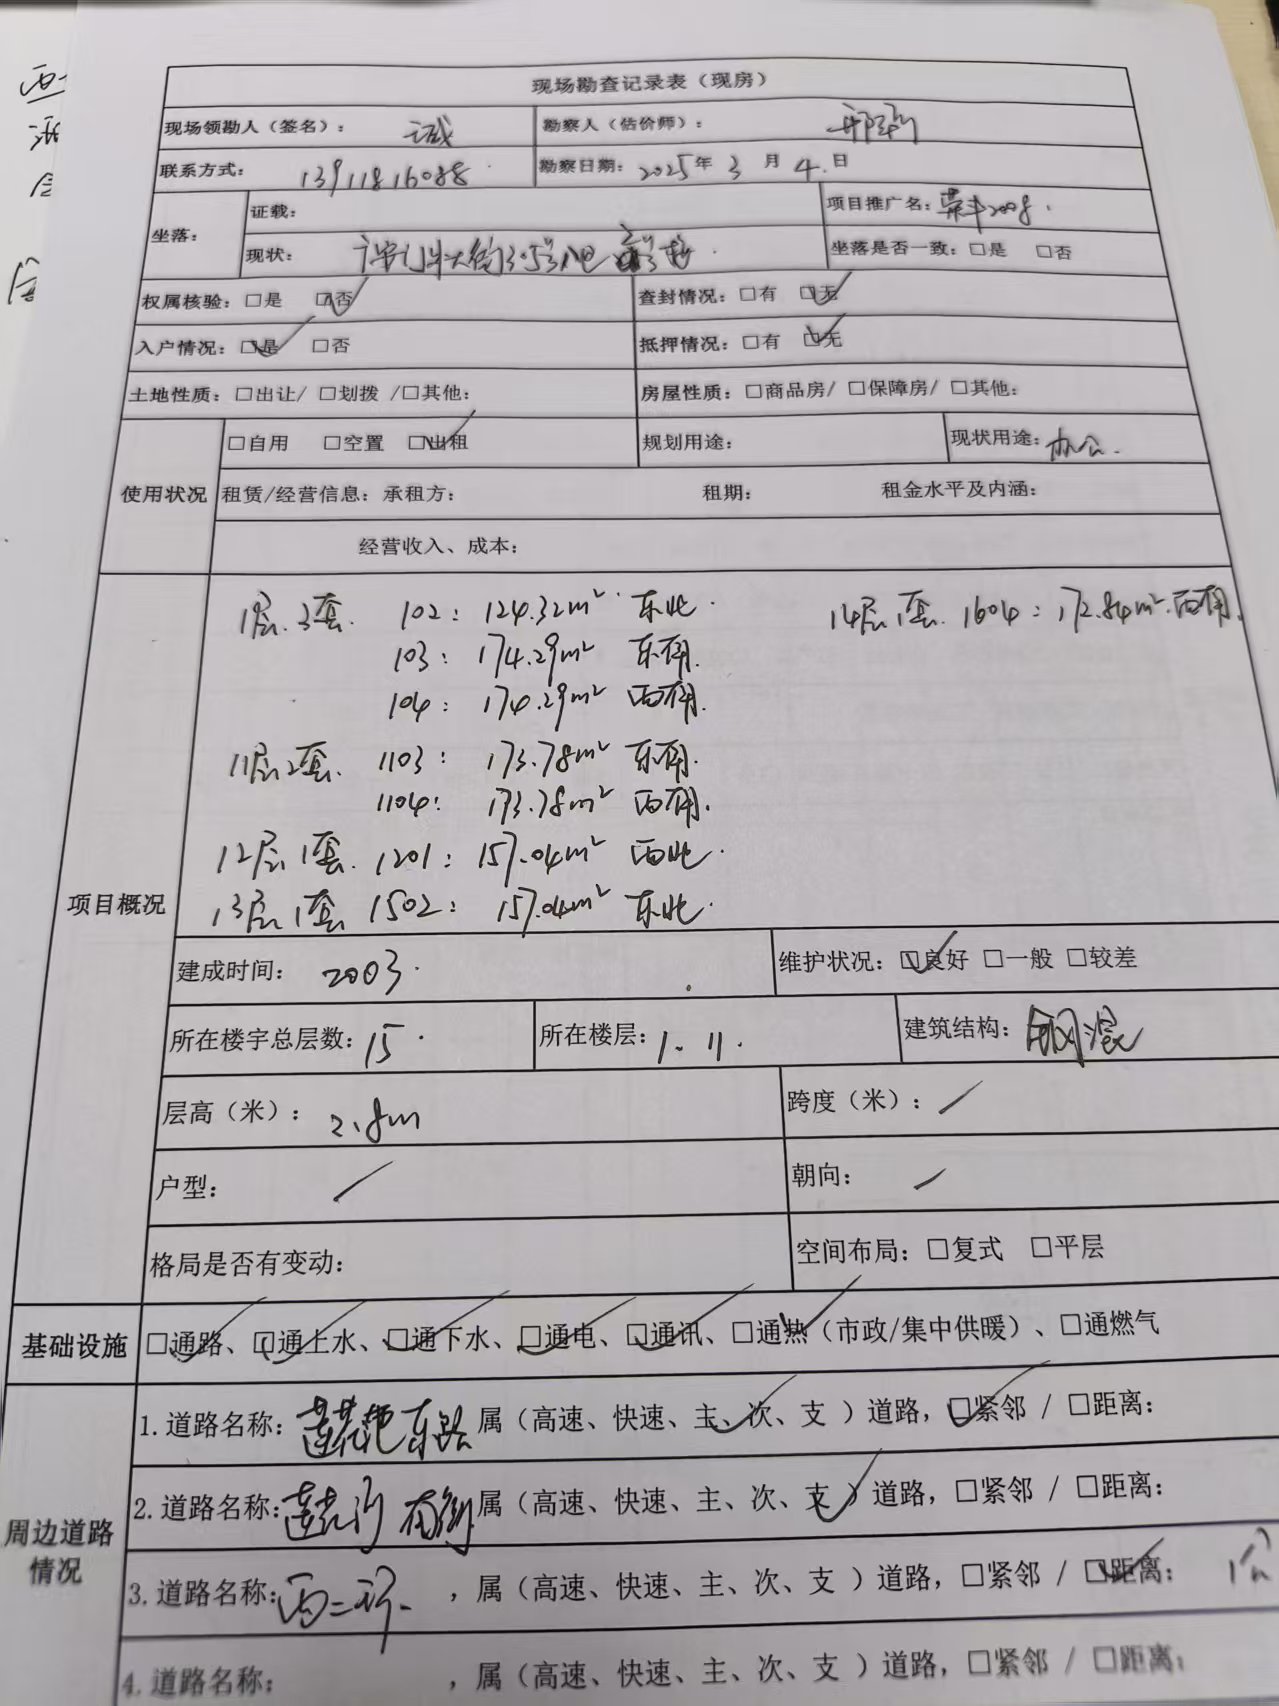 现场勘查记录表（现房）
现场领勘人（签名）： 诚 勘察人（估价师）：
联系方式： 13911816088 勘察日期：2025年 3 月 4 日
坐落： 证载： 项目推广名：荣丰2008.
现状： 广安门外大街305号八区 3号楼. 坐落是否一致：□是 □否
权属核验：□是 □否 查封情况：□有 □无
入户情况：□是 □否 抵押情况：□有 □无
土地性质：□出让/ □划拨 /□其他： 房屋性质：□商品房/ □保障房/ □其他：
使用状况 □自用 □空置 □出租 规划用途： 现状用途：办公.
租赁/经营信息：承租方： 租期： 租金水平及内涵：
经营收入、成本：
项目概况
1层.3套. 102：124.32m² 东北. 14层1套. 1604：172.84m².西南.
103：174.29m² 东南.
104：174.29m² 西南.
11层2套. 1103：173.78m² 东南.
1104：173.78m² 西南.
12层1套. 1201：157.04m² 西北.
13层1套 1502：157.04m² 东北.
建成时间： 2003. 维护状况：□良好 □一般 □较差
所在楼宇总层数：15. 所在楼层：1. 11. 建筑结构：钢混
层高（米）： 2.8m 跨度（米）：/
户型： / 朝向： /
格局是否有变动： 空间布局：□复式 □平层
基础设施 □通路、□通上水、□通下水、□通电、□通讯、□通热（市政/集中供暖）、□通燃气
周边道路情况
1.道路名称：莲花池东路 属（高速、快速、主、次、支 ）道路，□紧邻 / □距离：
2.道路名称：莲花河 属（高速、快速、主、次、支 ）道路，□紧邻 / □距离：
3.道路名称：西二环. ，属（高速、快速、主、次、支 ）道路，□紧邻 / □距离： 1公
4.道路名称： ，属（高速、快速、主、次、支 ）道路，□紧邻 / □距离：